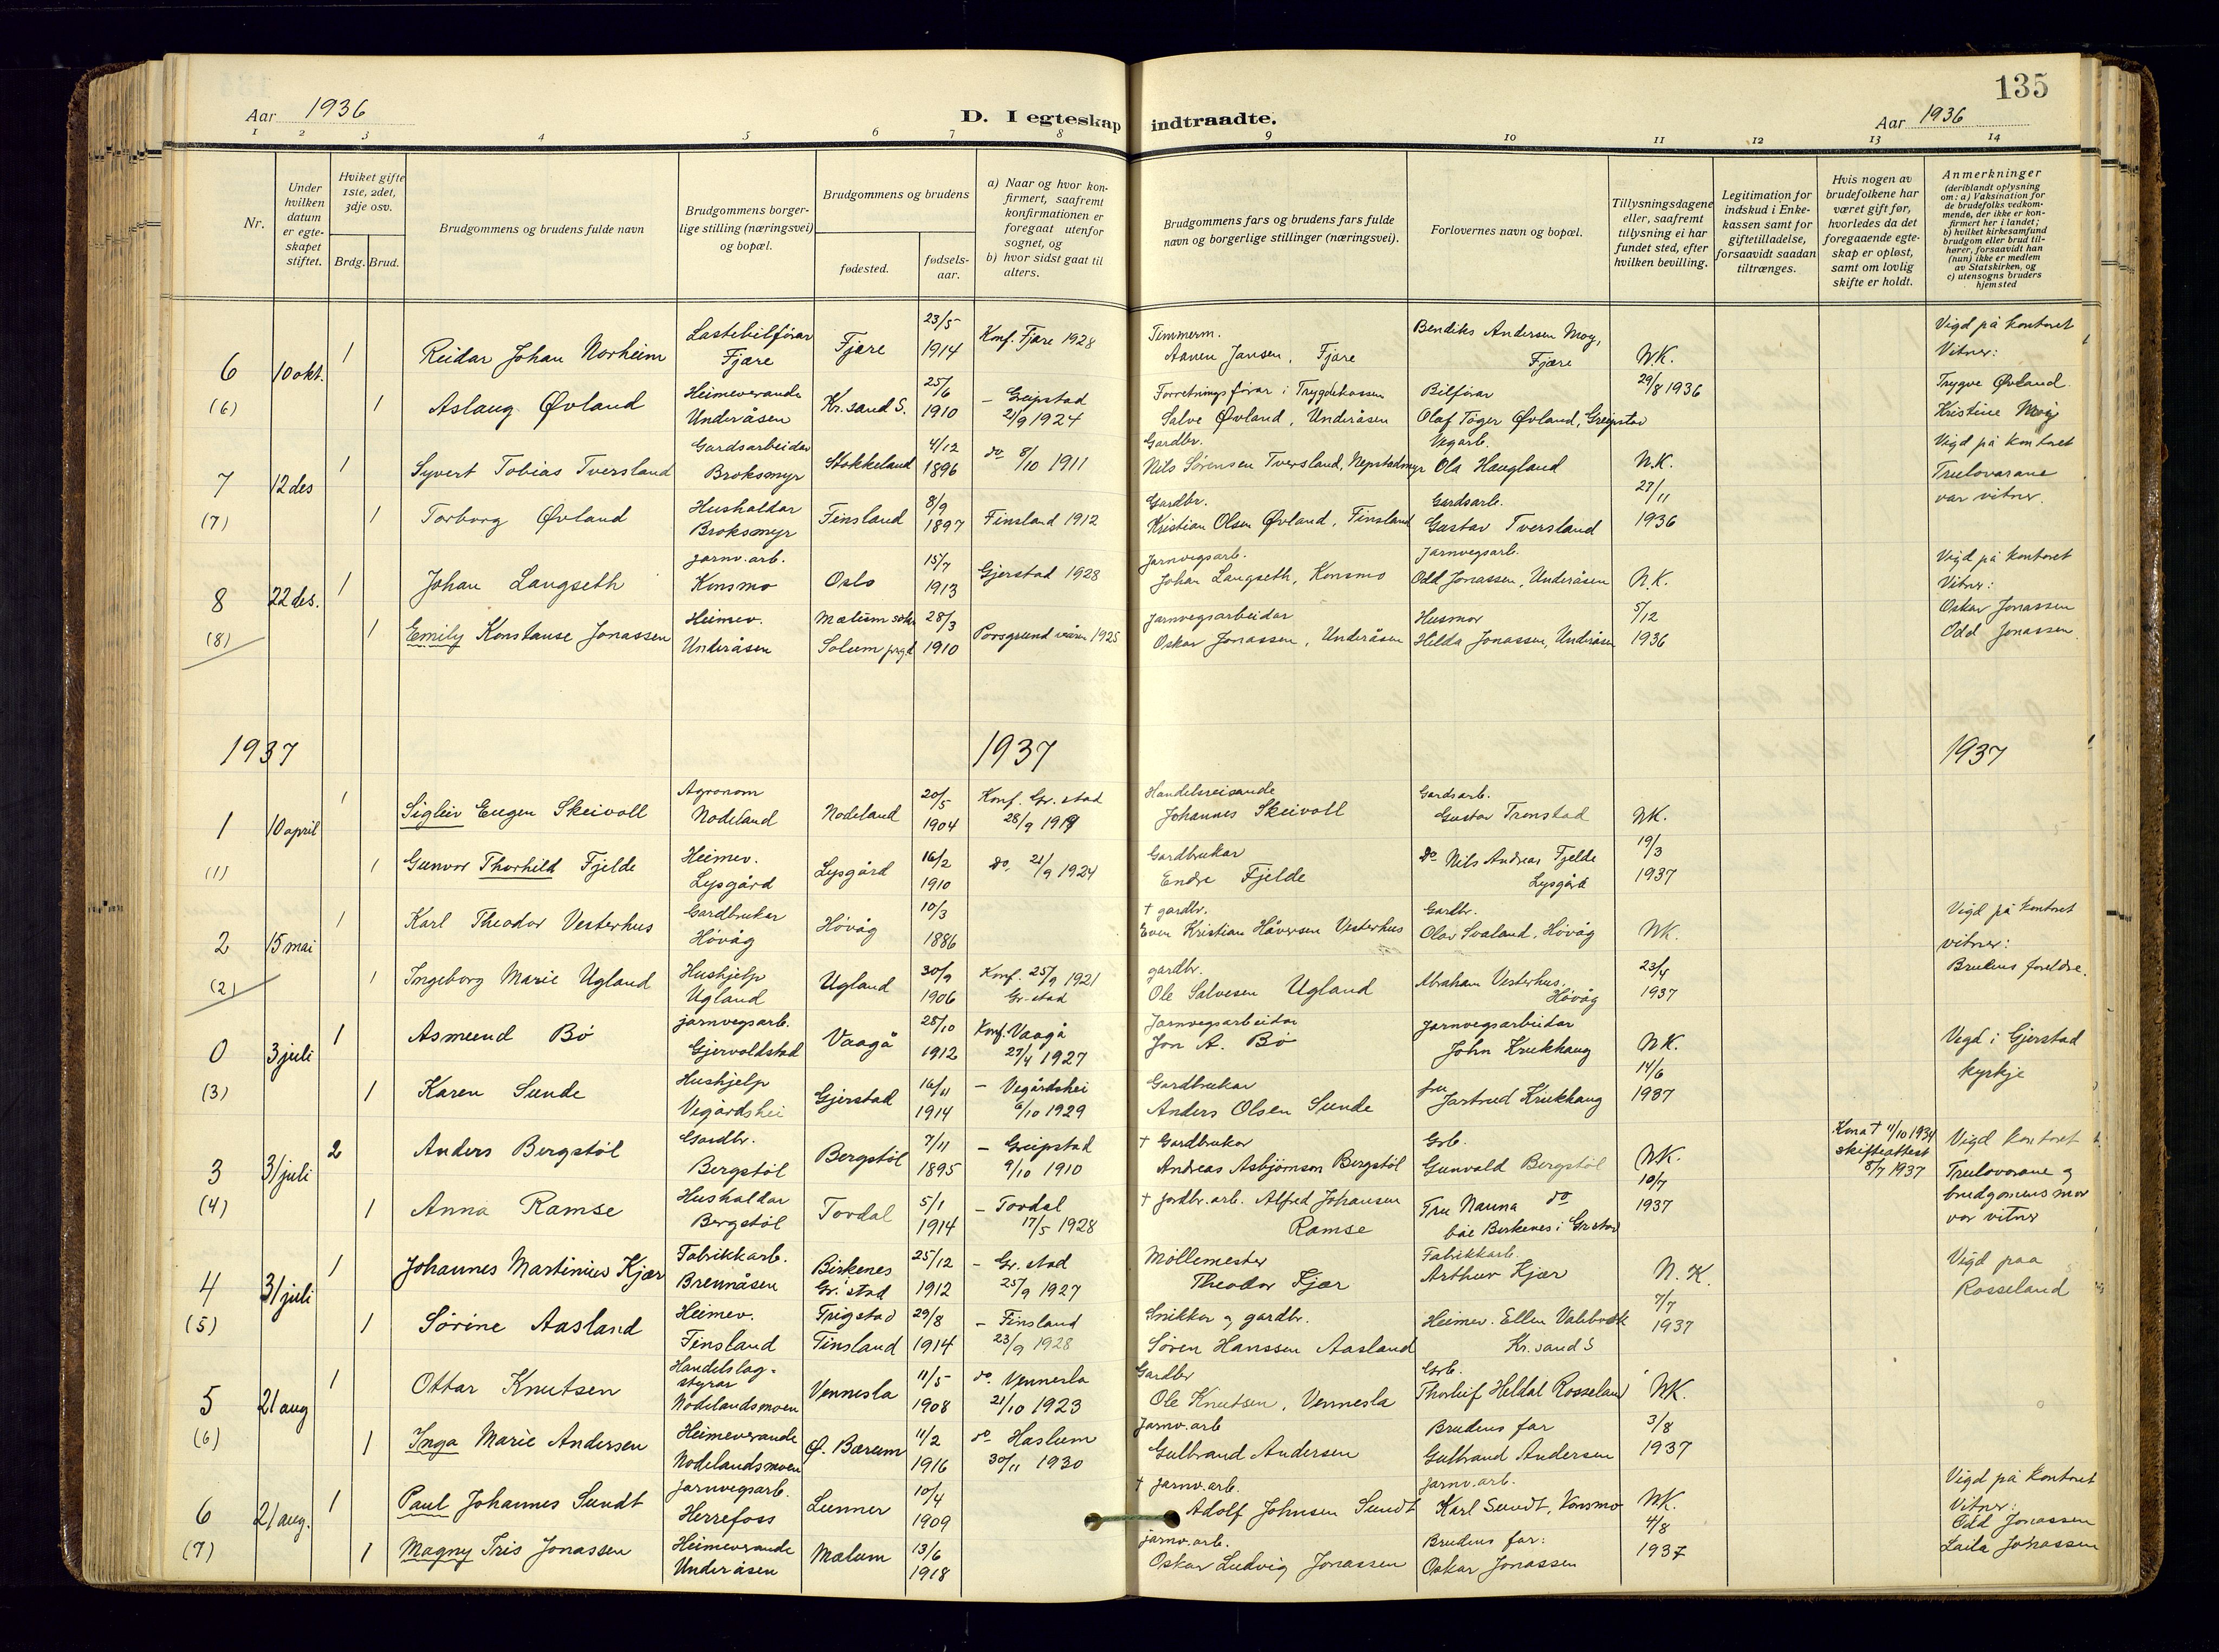 135
Aar 1936
D. I egteskap indtraadte.
Aar 1936
1 2 3 4 5 6 7 8 9 10 11 12 13 14
Nr.
Under hvilken datum er egte-skapet stiftet.
Hviket gifte 1ste, 2det, 3dje osv.
Brdg. Brud.
Brudgommens og brudens fulde navn
Brudgommens borger-lige stilling (næringsvei) og bopæl.
Brudgommens og brudens
fødested.
fødsels-aar.
a) Naar og hvor kon-firmert, saafremt konfirmationen er foregaat utenfor sognet, og
b) hvor sidst gaat til alters.
Brudgommens fars og brudens fars fulde navn og borgerlige stillinger (næringsvei).
Forlovernes navn og bopæl.
Tillysningsdagene eller, saafremt tillysning ei har fundet sted, efter hvilken bevilling.
Legitimation for indskud i Enke-kassen samt for giftetilladelse, forsaavidt saadan tiltrænges.
Hvis nogen av brudefolkene har været gift før, hvorledes da det foregaaende egte-skap er opløst, samt om lovlig skifte er holdt.
Anmerkninger (deriblandt oplysning om: a) Vaksination for de brudefolks vedkom-mende, der ikke er kon-firmert her i landet; b) hvilket kirkesamfund brudgom eller brud til-hører, forsaavidt han (hun) ikke er medlem av Statskirken, og c) utensogns bruders hjemsted
6 (6) 10 okt.
1 Reidar Johan Norheim Lastebilförar Fjære Fjære 23/5 1914 Konf. Fjære 1928 Timmerm. Aanen Jansen, Fjære Bendiks Andersen Moy, Fjære N.K. 29/8 1936 Vigd på kontoret Vitner: Trygve Øvland. Kristine Moy
1 Aslaug Øvland Heimeverande Underåsen Kr.sand S. 25/6 1910 – Greipstad 21/9 1924 Forretningsförar i Trygdekassen Salve Øvland, Underåsen Bilförar Olaf Töger Øvland, Greipstad
7 (7) 12 des
1 Syvert Tobias Tversland Gardsarbeidar Broksmyr Stokkeland 4/12 1896 do 8/10 1911 Gardbr. Nils Sörensen Tversland, Nepstadmyr Vegarb. Ola Haugland N.K. 27/11 1936 Vigd på kontoret Trulovarane var vitner.
1 Torborg Øvland Hushaldar Broksmyr Finsland 8/9 1897 Finsland 1912 Gardbr. Kristian Olsen Øvland, Finsland Gardsarb. Gustav Tversland
8 (8) 22 des.
1 Johan Langseth jarnv.arb. Konsmo Oslo 15/7 1913 Gjerstad 1928 Jarnvegsarb. Johan Langseth, Konsmo Jarnvegsarb. Odd Jonassen, Underåsen N.K. 5/12 1936 Vigd på kontoret Vitner: Oskar Jonassen Odd Jonassen.
1 Emily Konstanse Jonassen Heimev. Underåsen Mælum sokn Solum prgd 28/3 1910 Porsgrund våren 1925 Jarnvegsarbeidar Oskar Jonassen, Underåsen Husmor Hilda Jonassen, Underåsen
1937 1937 1937
1 (1) 10 april
1 Sigleiv Eugen Skeivoll Agronom Nodeland Nodeland 20/5 1904 Konf. Gr.stad 28/9 1919 Handelsreisande Johannes Skeivoll Gardsarb. Gustav Tronstad NK. 19/3 1937
1 Gunvor Thorhild Fjelde Heimev. Lysgård Lysgård 16/2 1910 do. 21/9 1924 Gardbrukar Endre Fjelde do Nils Andreas Fjelde Lysgård
2 (2) 15 mai
1 Karl Theodor Vesterhus Gardbrukar Hövåg Hövåg 10/3 1886 † gardbr. Even Kristian Håversen Vesterhus Gardbr. Olav Svaland, Hövåg NK. 23/4 1937 Vigd på kontoret vitner: Brudens foreldre.
1 Ingeborg Marie Ugland Hushjelp Ugland Ugland 30/9 1906 Konf. 25/9 1921 Gr.stad gardbr. Ole Salvesen Ugland Abraham Vesterhus, Hövåg
0 (3) 3 juli
1 Asmund Bö jarnvegsarb. Gjervoldstad Vaagå 28/10 1912 Konf. Vaagå 27/4 1927 Jarnvegsarbeidar Jon A. Bö Jarnvegsarbeidar John Krukhaug N.K. 14/6 1937 Vigd i Gjerstad kyrkje
1 Karen Sunde Hushjelp Vegårdshei Gjerstad 16/11 1914 – Vegårdshei 6/10 1929 Gardbrukar Anders Olsen Sunde fru Jartrud Krukhaug
3 (4) 31 juli
2 Anders Bergstöl Gardbr. Bergstöl Bergstöl 7/11 1895 – Greipstad 9/10 1910 † Gardbrukar Andreas Asbjörnson Bergstöl Grb. Gunvald Bergstöl NK. 10/7 1937 Kona † 11/10 1934 skifteattest 8/7 1937 Vigd kontoret Trulovarane og brudgomens mor var vitner
1 Anna Ramse Hushaldar Bergstöl Tovdal 5/1 1914 – Tovdal 17/5 1928 † Jordbr.arb. Alfred Johansen Ramse Fru Nanna do båe Birkenes i Gr.stad
4 (5) 31 juli
1 Johannes Martinius Kjær Fabrikkarb. Brennåsen Birkenes Gr.stad 25/12 1912 – Gr.stad 25/9 1927 Möllemester Theodor Kjær Fabrikkarb. Arthur Kjær N.K. 7/7 1937 Vigd paa Rosseland
1 Sörine Aasland Heimev. Finsland Frigstad Finsland 29/8 1914 – Finsland 23/9 1928 Snikkar og gardbr. Sören Hanssen Aasland Heimev. Ellen Valebrokk Kr.sand S
5 (6) 21 aug
1 Ottar Knutsen Handelslag-styrar Nodelandsmoen Vennesla 11/5 1908 do. Vennesla 21/10 1923 Gardbr Ole Knutsen, Vennesla Grb. Thorleif Heldal Rosseland NK. 3/8 1937
1 Inga Marie Andersen Heimeverande Nodelandsmoen Ö. Bærum 11/2 1916 do Haslum 30/11 1930 Jarnv.arb Gulbrand Andersen Brudens far Gulbrand Andersen
6 (7) 21 aug.
1 Paul Johannes Sundt Jarnvegsarb. Herrefoss Lunner 10/4 1909 † Jarnv.arb. Adolf Johnsen Sundt Jarnv.arb. Karl Sundt, Konsmo NK. 4/8 1937 Vigd på kontoret Vitner: Odd Jonassen Laila Jonassen
1 Magny Iris Jonassen Heimeverande Underåsen Mælum 13/6 1918 jarnv.arb. Oskar Ludvig Jonassen Brudens far: Oskar Jonassen